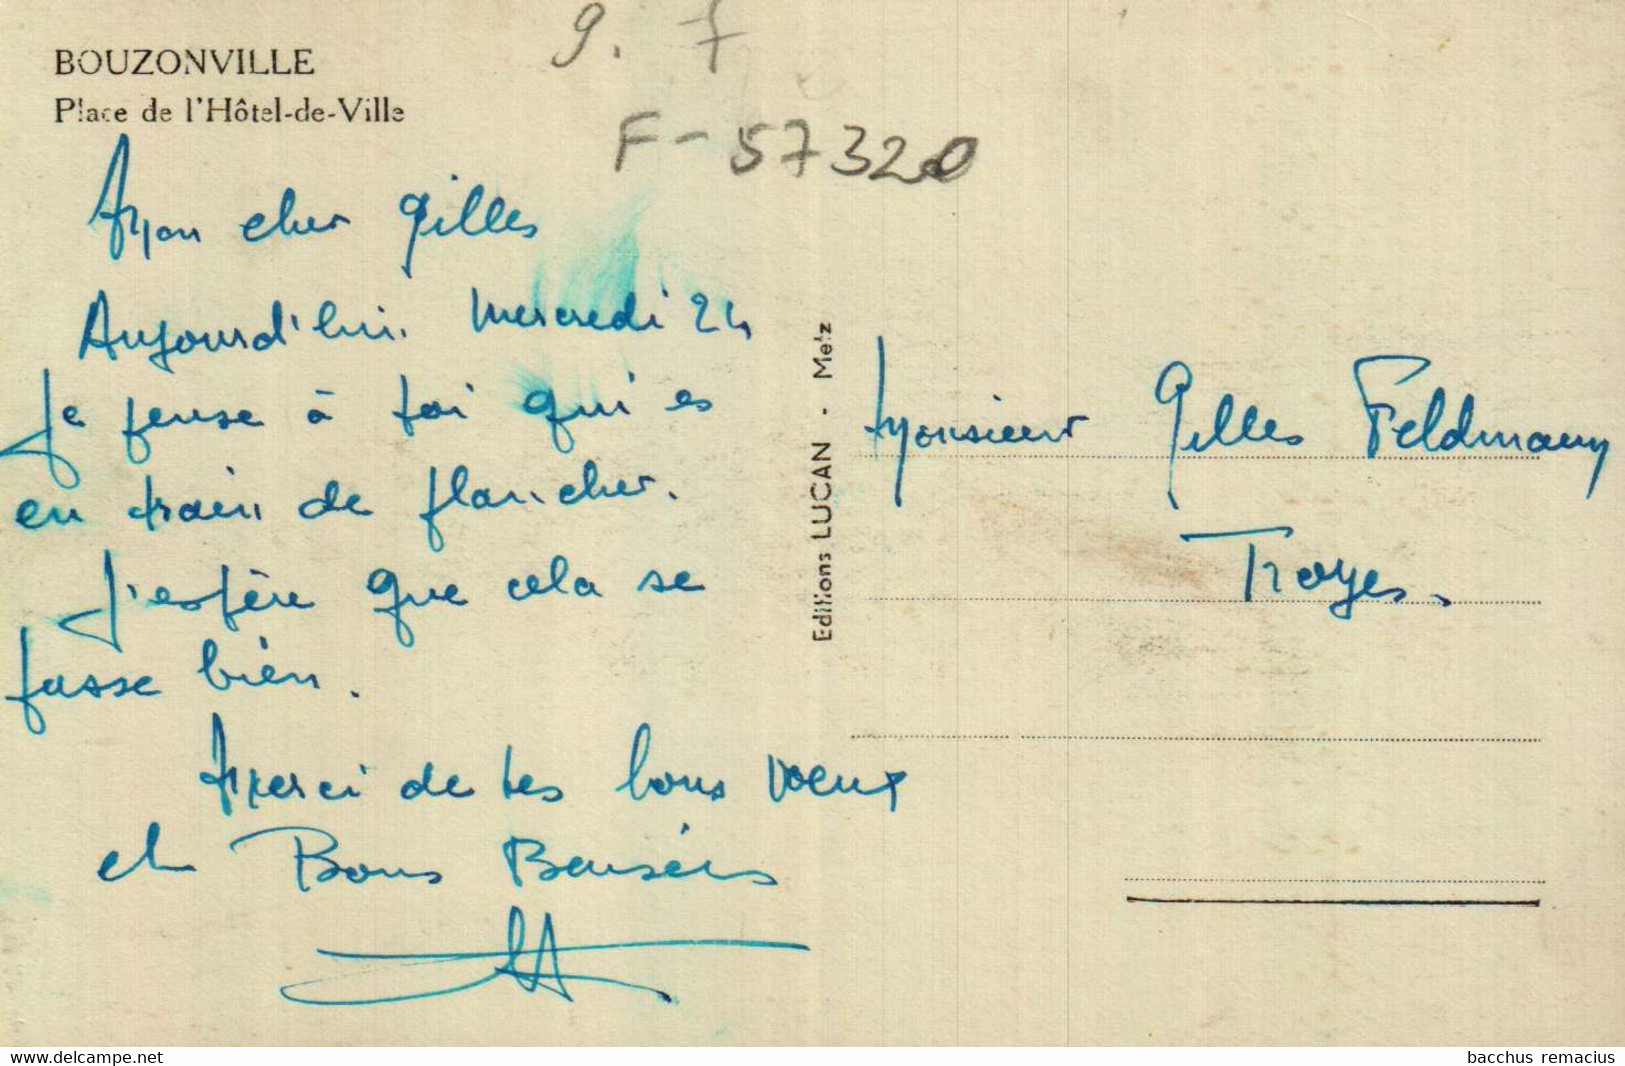 9. 7
BOUZONVILLE
Place de l'Hôtel-de-Ville
F-57320
Mon cher Gilles
Aujourd'hui Mercredi 24
Je pense à toi qui es
en train de plancher.
J'espère que cela se
fasse bien.
Merci de tes bons voeux
et Bons Baisers
Editions LUCAN - Metz
Monsieur Gilles Feldmann
Troyes.
www.delcampe.net
bacchus remacius